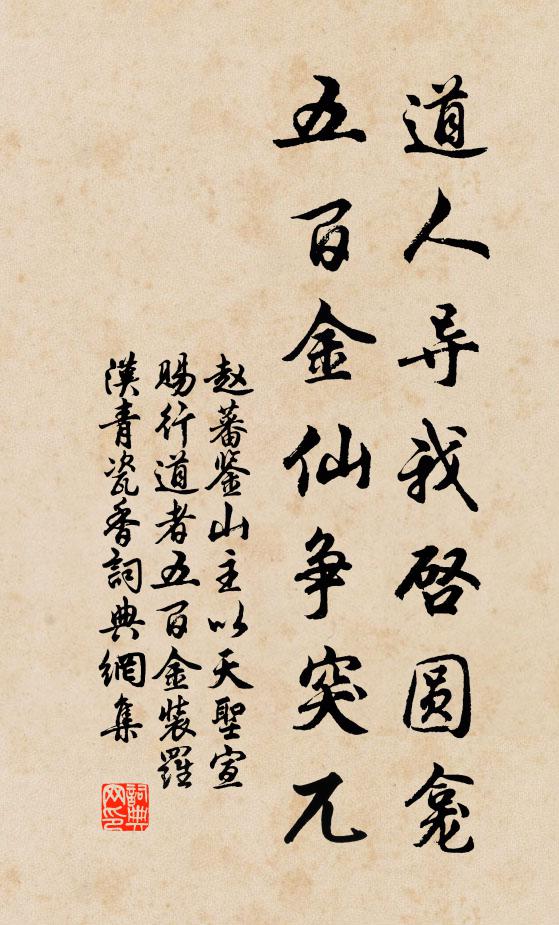 道人导我启圆龛
五百金仙争突兀
赵蕃鉴山主以天聖宣
赐行道者五百金装羅
漢青瓷香詞典網集
詞典网印